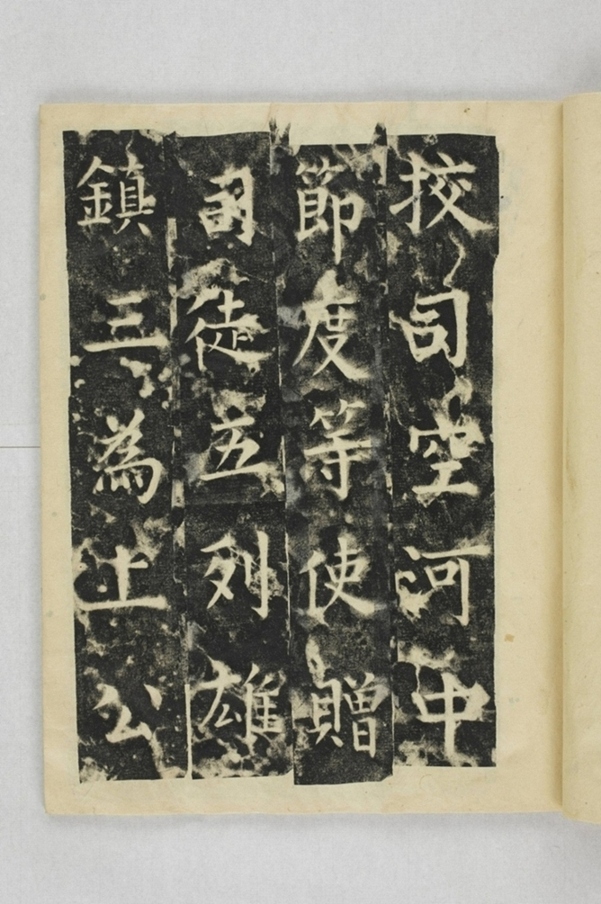 挍司空河中
節度等使贈
司徒五列雄
鎮三為上公